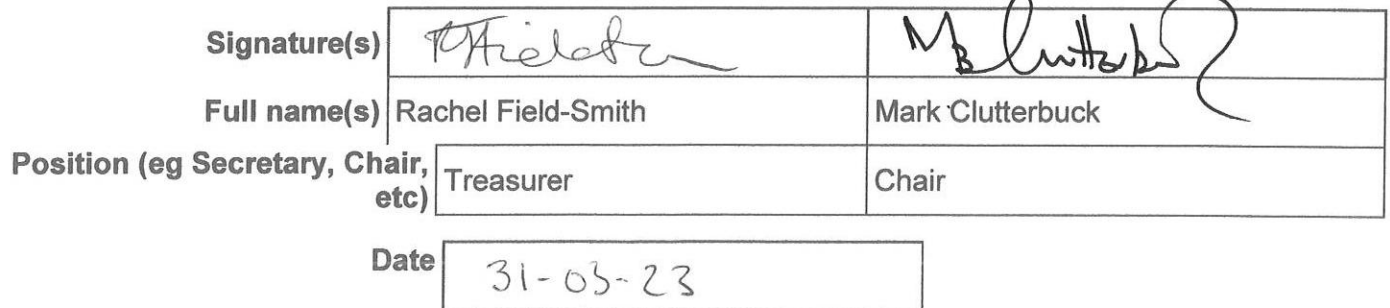 Signature(s)
Full name(s) Rachel Field-Smith Mark Clutterbuck
Position (eg Secretary, Chair,
etc) Treasurer Chair
Date 31-03-23